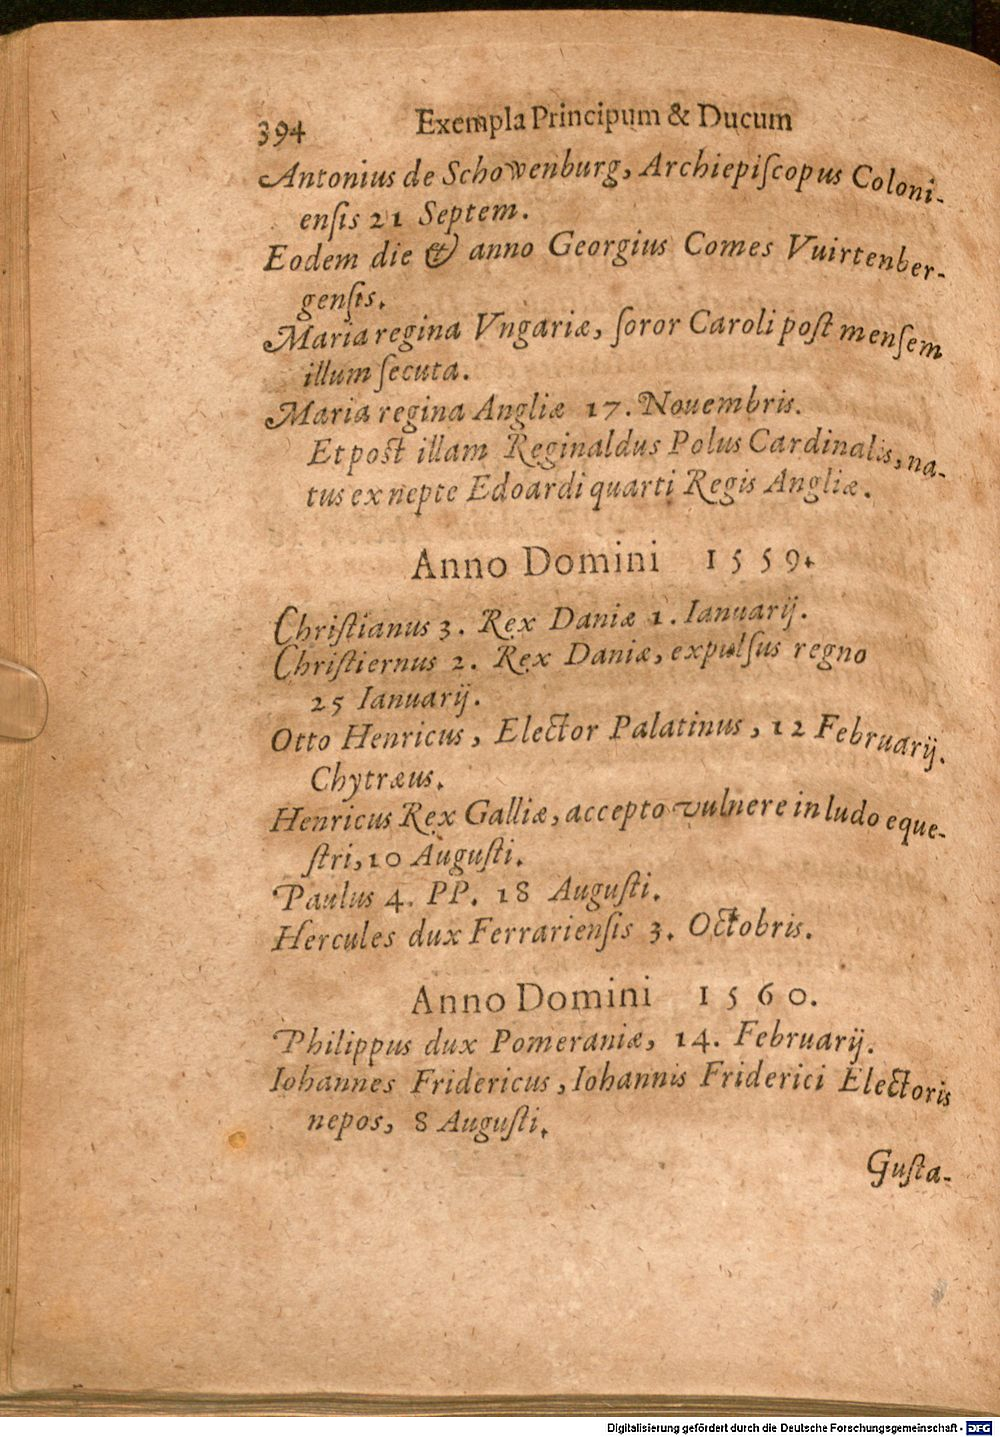 394 Exempla Principum & Ducum
Antonius de Schowenburg, Archiepiſcopus Coloni-
enſis 21 Septem.
Eodem die & anno Georgius Comes Vuirtenber-
genſis.
Maria regina Vngariæ, ſoror Caroli poſt menſem
illum ſecuta.
Maria regina Angliæ 17. Nouembris.
Et poſt illam Reginaldus Polus Cardinalis, na-
tus ex nepte Edoardi quarti Regis Angliæ.
Anno Domini 1559.
Chriſtianus 3. Rex Daniæ 1. Ianuarij.
Chriſtiernus 2. Rex Daniæ, expulſus regno
25 Ianuarij.
Otto Henricus, Elector Palatinus, 12 Februarij.
Chytræus.
Henricus Rex Galliæ, accepto vulnere in ludo eque-
ſtri, 10 Auguſti.
Paulus 4. PP. 18 Auguſti.
Hercules dux Ferrarienſis 3. Octobris.
Anno Domini 1560.
Philippus dux Pomeraniæ, 14. Februarij.
Iohannes Fridericus, Iohannis Friderici Electoris
nepos, 8 Auguſti.
Guſta-
Digitalisierung gefördert durch die Deutsche Forschungsgemeinschaft - DFG